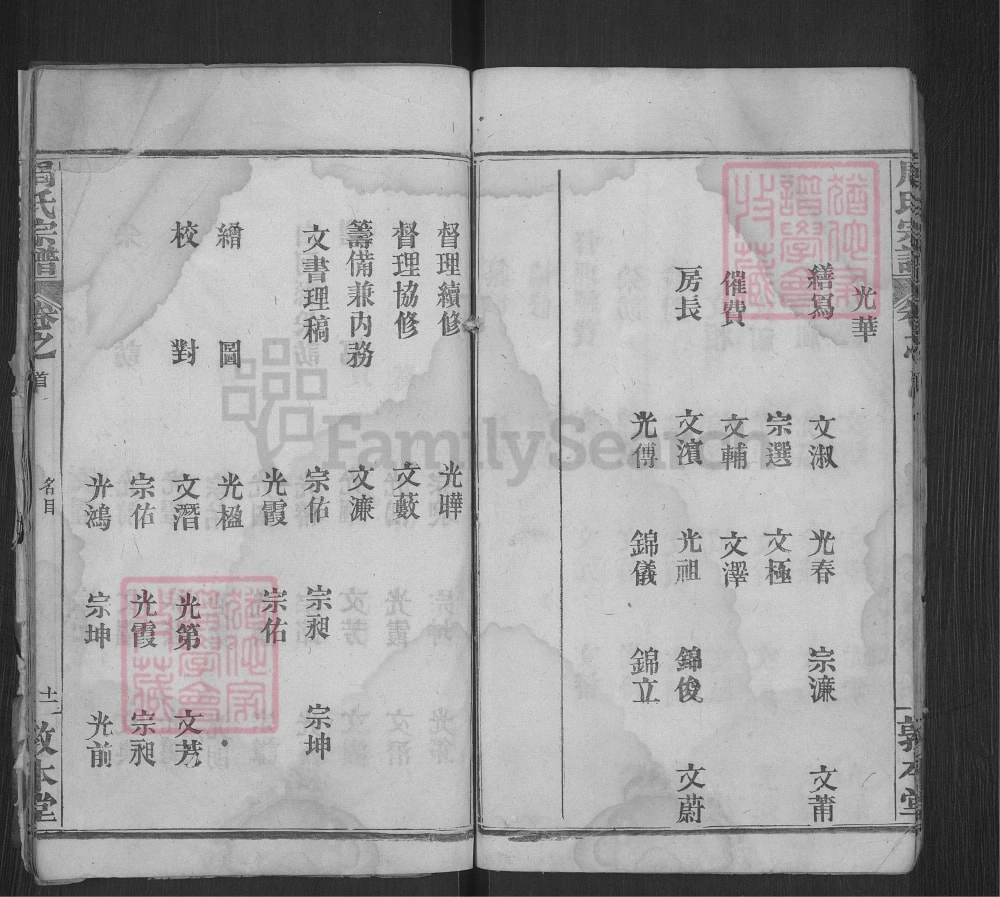 光華
繕寫 文淑 光春 宗濂 文莆
宗選 文極
催費 文輔 文澤
房長 文濱 光祖 錦俊 文蔚
光傳 錦儀 錦立
敦本堂
督理續修 光曄
督理協修 文藪
籌備兼內務 文濂
文書理稿 宗佑 宗昶 宗坤
光霞 宗佑
繪圖 光楹
校對 文潛 光第 文芳
宗佑 光霞 宗昶
光鴻 宗坤 光前
周氏宗譜 卷之首 名目 十一 敦本堂
猶他家譜學會收藏
猶他家譜學會收藏
FamilySearch